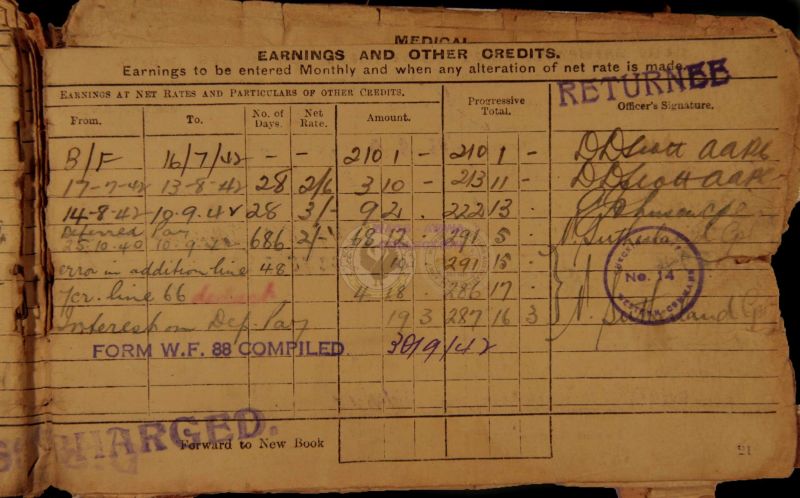 MEDICAL
EARNINGS AND OTHER CREDITS.
Earnings to be entered Monthly and when any alteration of net rate is made.
RETURNED
EARNINGS AT NET RATES AND PARTICULARS OF OTHER CREDITS.
Progressive Total.
Officer's Signature.
From. To. No. of Days. Net Rate. Amount.
B/F 16/7/42 - - 210 1 - 210 1 - D D Scott AAPC
17-7-42 13-8-42 28 2/6 3 10 - 213 11 - D D Scott AAPC
14-8-42 10.9.42 28 3/- 9 2 . 222 13
Deferred Pay
25.10.40 10.9.42 686 2/- 68 12 291 5 Sutherland
error in addition line 48 10 291 15
Jcr. line 66 4 18 286 17
Interest on Def. Pay 19 3 287 16 3 N. Sutherland
No. 14
FORM W.F. 88 COMPILED 30/9/42
DISCHARGED.
Forward to New Book
21